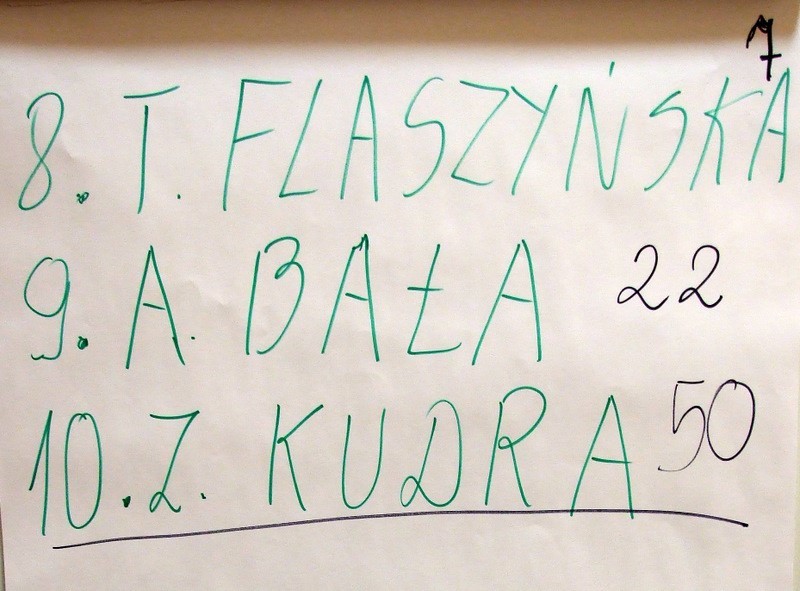 8. T. FLASZYŃSKA 7
9. A. BAŁA 22
10. Z. KUDRA 50